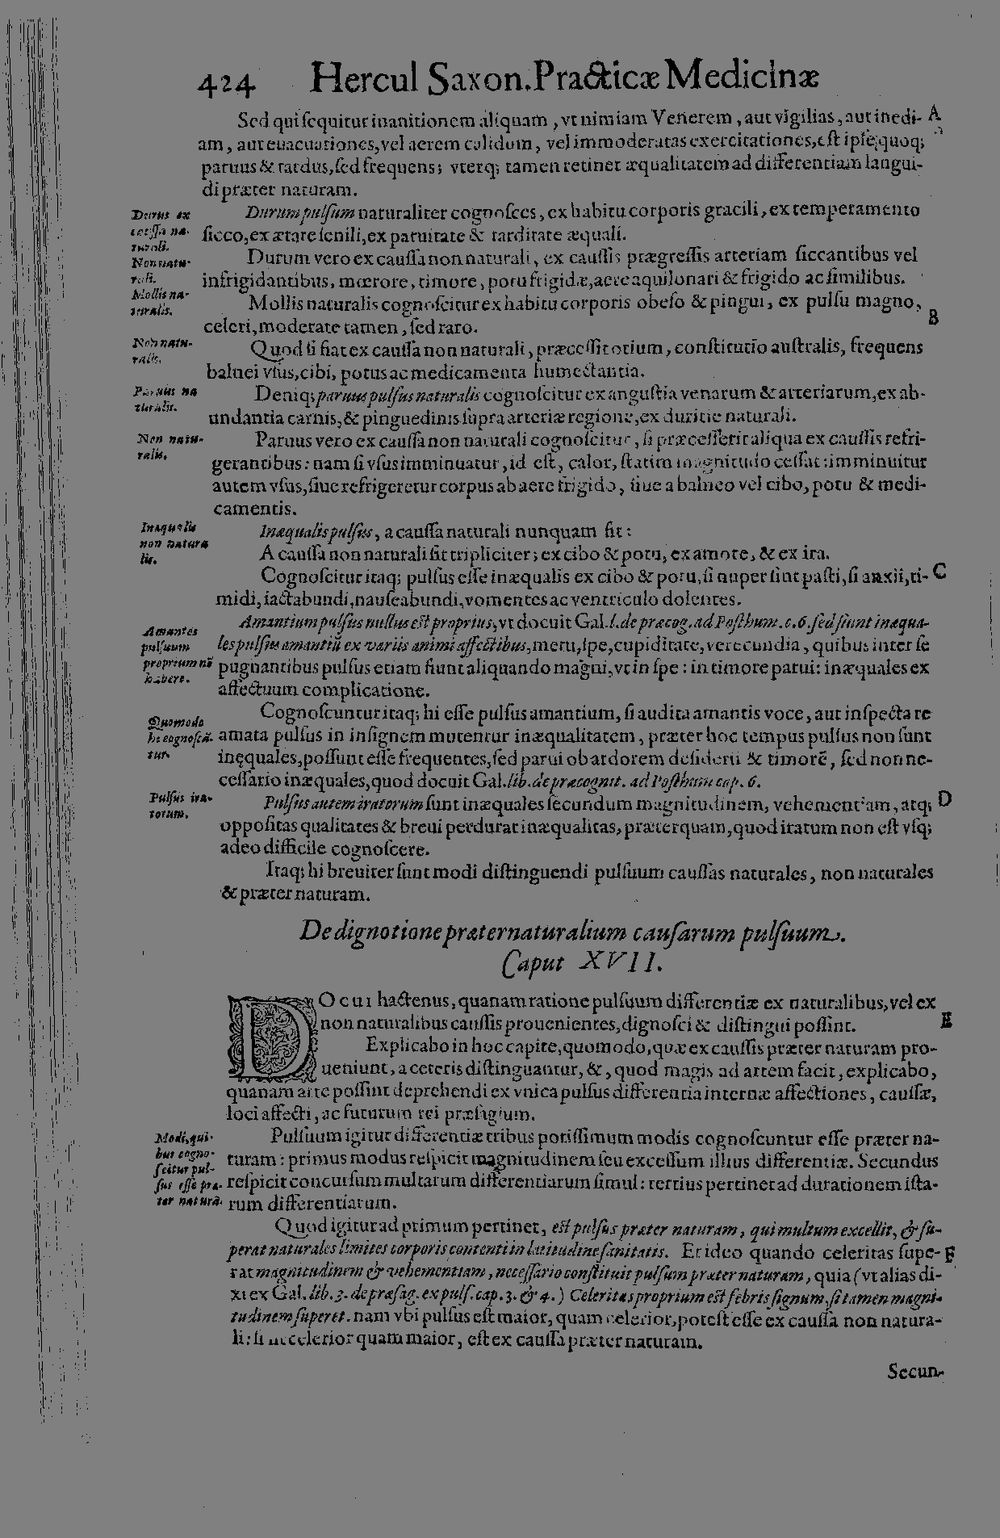 424 Hercul Saxon. Practicæ Medicinæ
Sed qui sequitur inanitionem aliquam, vt nimiam Venerem, aut vigilias, aut inedi- A
am, aut euacuationes, vel aerem calidum, vel immoderatas exercitationes, est ipse quoq;
paruus & tardus, sed frequens; vterq; tamen retinet æqualitatem ad differentiam langui-
di præter naturam.
Durum pulsum naturaliter cognosces, ex habitu corporis gracili, ex temperamento
sicco, ex ætate senili, ex paruitate & tarditate æquali.
Durus ex
caussa na-
turali.
Durum vero ex caussa non naturali, ex caussis prægressis arteriam siccantibus vel
infrigidantibus, mœrore, timore, potu frigidæ, aere aquilonari & frigido ac similibus.
Non natu-
rali.
Mollis naturalis cognoscitur ex habitu corporis obeso & pingui, ex pulsu magno,
celeri, moderate tamen, sed raro.
Mollis na-
turalis.
B
Quod si fiat ex caussa non naturali, præcessit otium, constitutio australis, frequens
balnei vsus, cibi, potus ac medicamenta humectantia.
Non natu-
ralis.
Deniq; paruus pulsus naturalis cognoscitur ex angustia venarum & arteriarum, ex ab-
undantia carnis, & pinguedinis supra arteriæ regione, ex duritie naturali.
Paruus na
turalis.
Paruus vero ex caussa non naturali cognoscitur, si præcesserit aliqua ex caussis refri-
gerantibus: nam si vsus imminuatur, id est, calor, statim magnitudo cessat: imminuitur
autem vsus, siue refrigeretur corpus ab aere frigido, siue a balneo vel cibo, potu & medi-
camentis.
Non natu-
ralis.
Inæqualis pulsus, a caussa naturali nunquam fit:
A caussa non naturali fit tripliciter; ex cibo & potu, ex amore, & ex ira.
Inæqualis
non natura
lis.
Cognoscitur itaq; pulsus esse inæqualis ex cibo & potu, si nuper sint pasti, si anxii, ti- C
midi, iactabundi, nauseabundi, vomentes ac ventriculo dolentes.
Amantium pulsus nullus est proprius, vt docuit Gal. l. de præcog. ad Posthum. c. 6. sed fiunt inæqua-
les pulsus amantiũ ex variis animi affectibus, metu, spe, cupiditate, verecundia, quibus inter se
pugnantibus pulsus etiam fiunt aliquando magni, vt in spe: in timore parui: inæquales ex
affectuum complicatione.
Amantes
pulsuum
proprium nõ
habere.
Cognoscuntur itaq; hi esse pulsus amantium, si audita amantis voce, aut inspecta re
amata pulsus in insignem mutentur inæqualitatem, præter hoc tempus pulsus non sunt
inęquales, possunt esse frequentes, sed parui ob ardorem desiderii & timorẽ, sed non ne-
cessario inæquales, quod docuit Gal. lib. de præcognit. ad Posthum cap. 6.
Quomodo
hi cognoscã-
tur.
Pulsus autem iratorum sunt inæquales secundum magnitudinem, vehementiam, atq; D
oppositas qualitates & breui perdurat inæqualitas, præterquam, quod iratum non est vsq;
adeo difficile cognoscere.
Pulsus ira-
torum.
Itaq; hi breuiter sunt modi distinguendi pulsuum caussas naturales, non naturales
& præter naturam.
De dignotione præternaturalium causarum pulsuum.
Caput XVII.
DOcui hactenus, quanam ratione pulsuum differentiæ ex naturalibus, vel ex
non naturalibus caussis prouenientes, dignosci & distingui possint. E
Explicabo in hoc capite, quomodo, quæ ex caussis præter naturam pro-
ueniunt, a ceteris distinguantur, &, quod magis ad artem facit, explicabo,
quanam arte possint deprehendi ex vnica pulsus differentia internæ affectiones, caussæ,
loci affecti, ac futurum rei præsigium.
Pulsuum igitur differentiæ tribus potissimum modis cognoscuntur esse præter na-
turam: primus modus respicit magnitudinem seu excessum illius differentiæ. Secundus
respicit concursum multarum differentiarum simul: tertius pertinet ad durationem ista-
rum differentiarum.
Modi, qui-
bus cogno-
scitur pul-
sus esse præ-
ter naturã.
Quod igitur ad primum pertinet, est pulsus præter naturam, qui multum excellit, & su-
perat naturales limites corporis contenti in latitudine sanitatis. Et ideo quando celeritas supe- F
rat magnitudinem & vehementiam, necessario constituit pulsum præter naturam, quia (vt alias di-
xi ex Gal. lib. 3. de præsag. ex puls. cap. 3. & 4.) Celeritas proprium est febris signum, si tamen magni-
tudinem superet. nam vbi pulsus est maior, quam celerior, potest esse ex caussa non natura-
li: si celerior quam maior, est ex caussa præter naturam.
Secun-